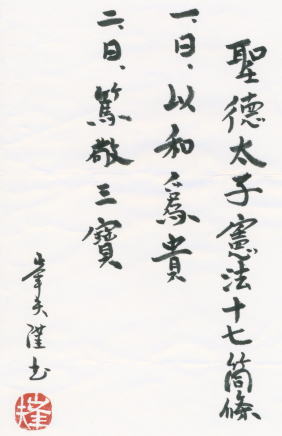 聖德太子憲法十七箇條
一、曰、以和爲貴
二、曰、篤敬三寶
書